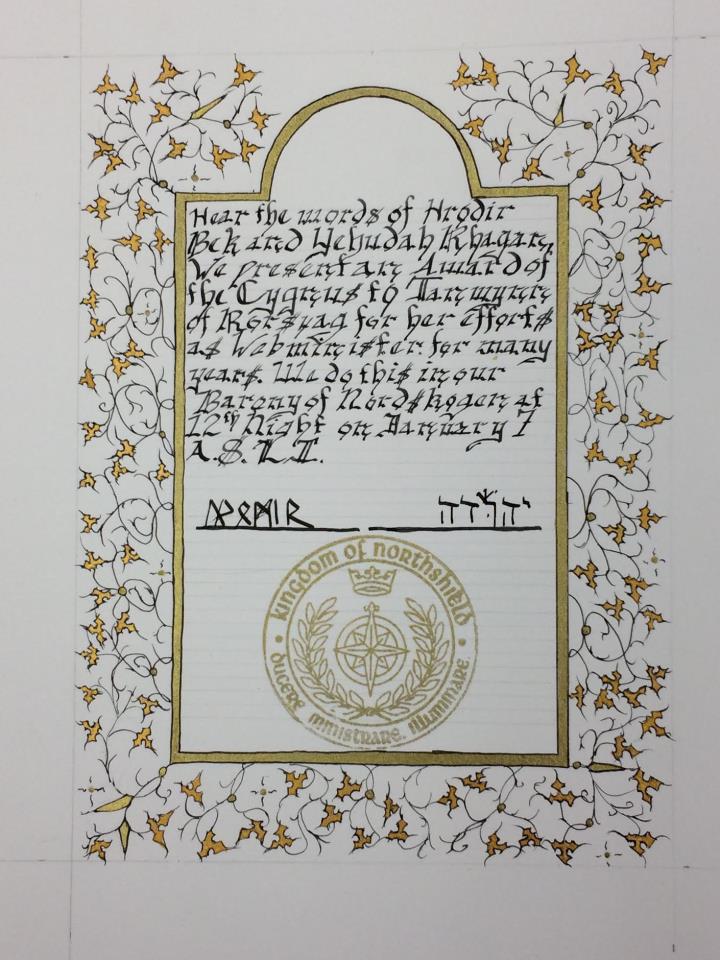 Hear the words of Hrodir
Bek and Yehudah Khagan,
We present an Award of
the Cygnus to
of Korsvag for her efforts
as Webminister for many
years. We do this in our
Barony of Nordskogen at
12th Night on January 7
A.S. L I.
יהודה
kingdom of northshield
ducere ministrare illuminare